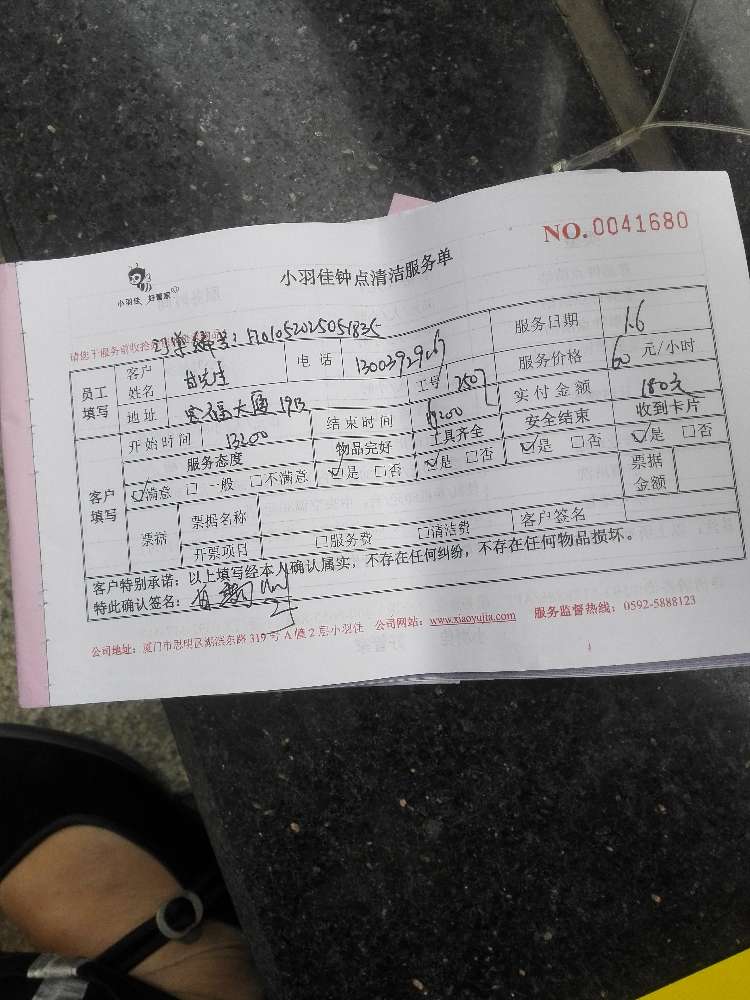 NO.0041680
小羽佳 好管家
小羽佳钟点清洁服务单
订单编号:
员工填写 客户姓名 甘先生 电话 服务日期 1.6
地址 大厦 1913 工号 2507 服务价格 60 元/小时
开始时间 13:00 结束时间 实付金额 180元
客户填写 服务态度 物品完好 工具齐全 安全结束 收到卡片
☑满意 □一般 □不满意 ☑是 □否 ☑是 □否 ☑是 □否 ☑是 □否
票据 票据名称 票据金额
开票项目 □服务费 □清洁费 客户签名
客户特别承诺:以上填写经本人确认属实,不存在任何纠纷,不存在任何物品损坏。
特此确认签名:
公司地址:厦门市思明区湖滨东路 319 号 A 馥 2 层小羽佳 公司网站:www.xiaoyujia.com 服务监督热线:0592-5888123